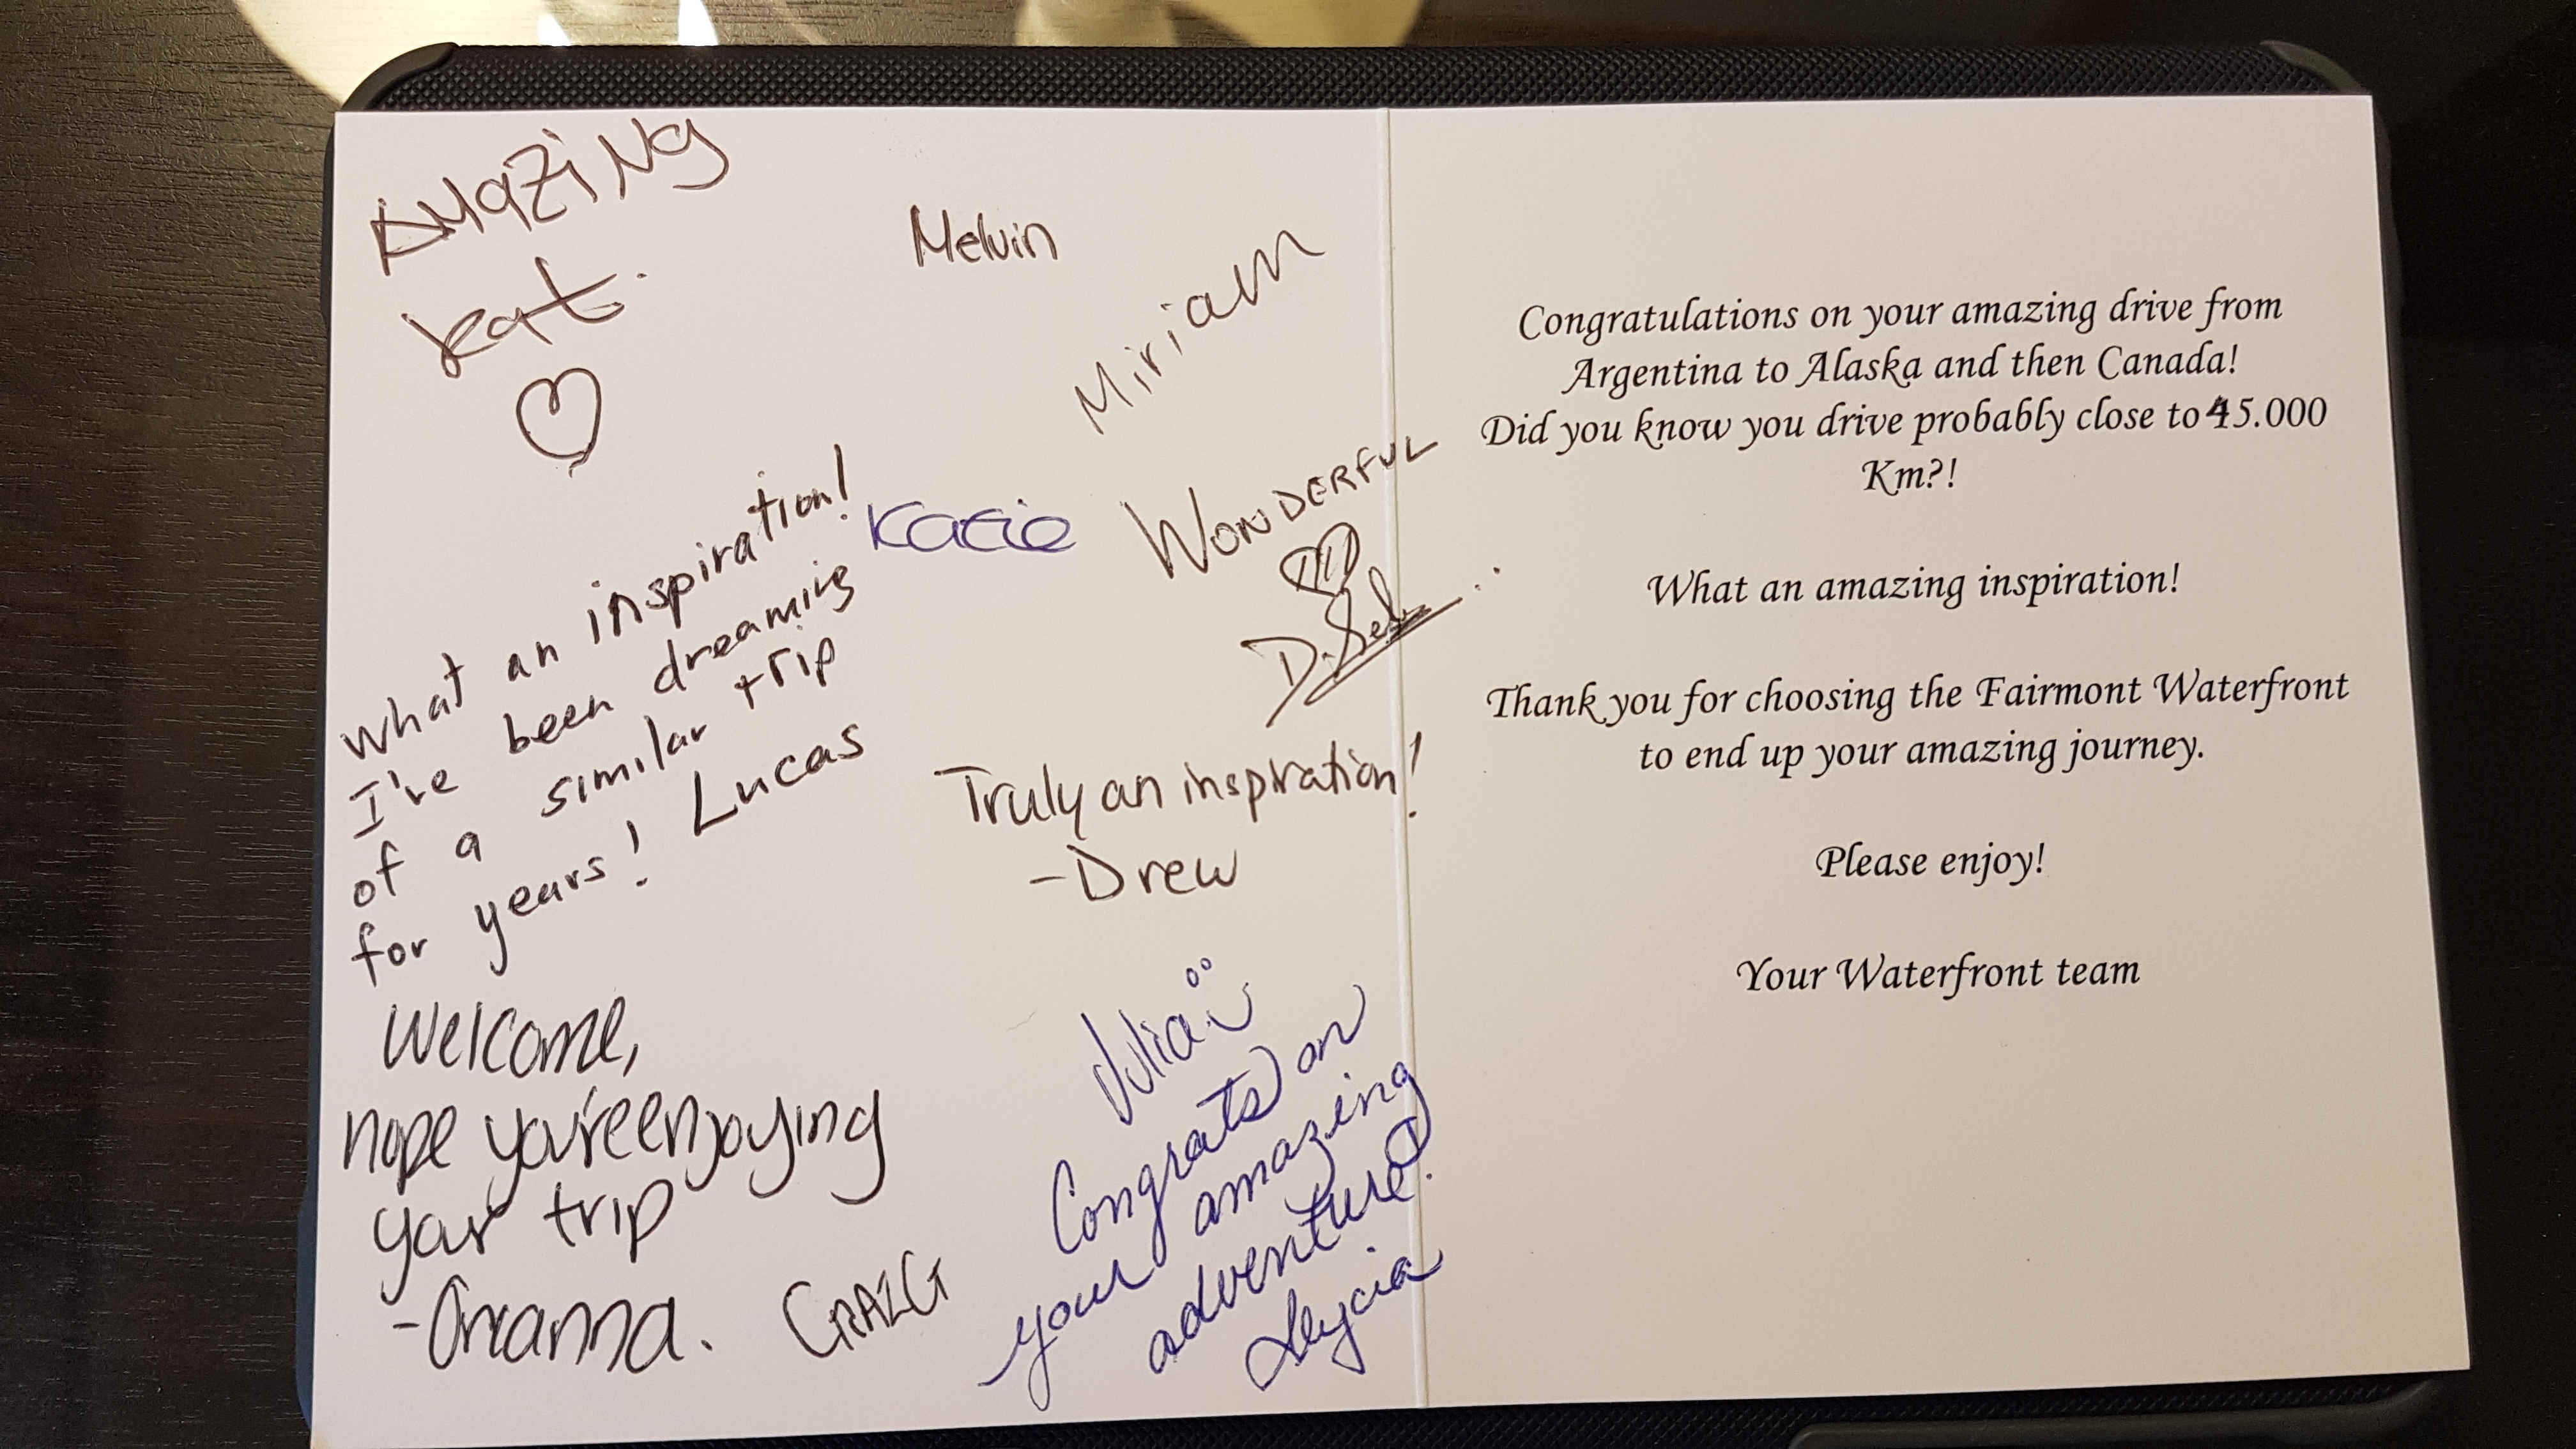 AMAZING
Kat.
Melvin
Miriam
What an inspiration!
I've been dreaming
of a similar trip
for years! Lucas
Katie
WONDERFUL
Truly an inspiration!
-Drew
Welcome,
hope you're enjoying
your trip
CRAIG
Julia
Congrats on
your amazing
adventure!
Alycia
Congratulations on your amazing drive from
Argentina to Alaska and then Canada!
Did you know you drive probably close to 45.000
Km?!
What an amazing inspiration!
Thank you for choosing the Fairmont Waterfront
to end up your amazing journey.
Please enjoy!
Your Waterfront team